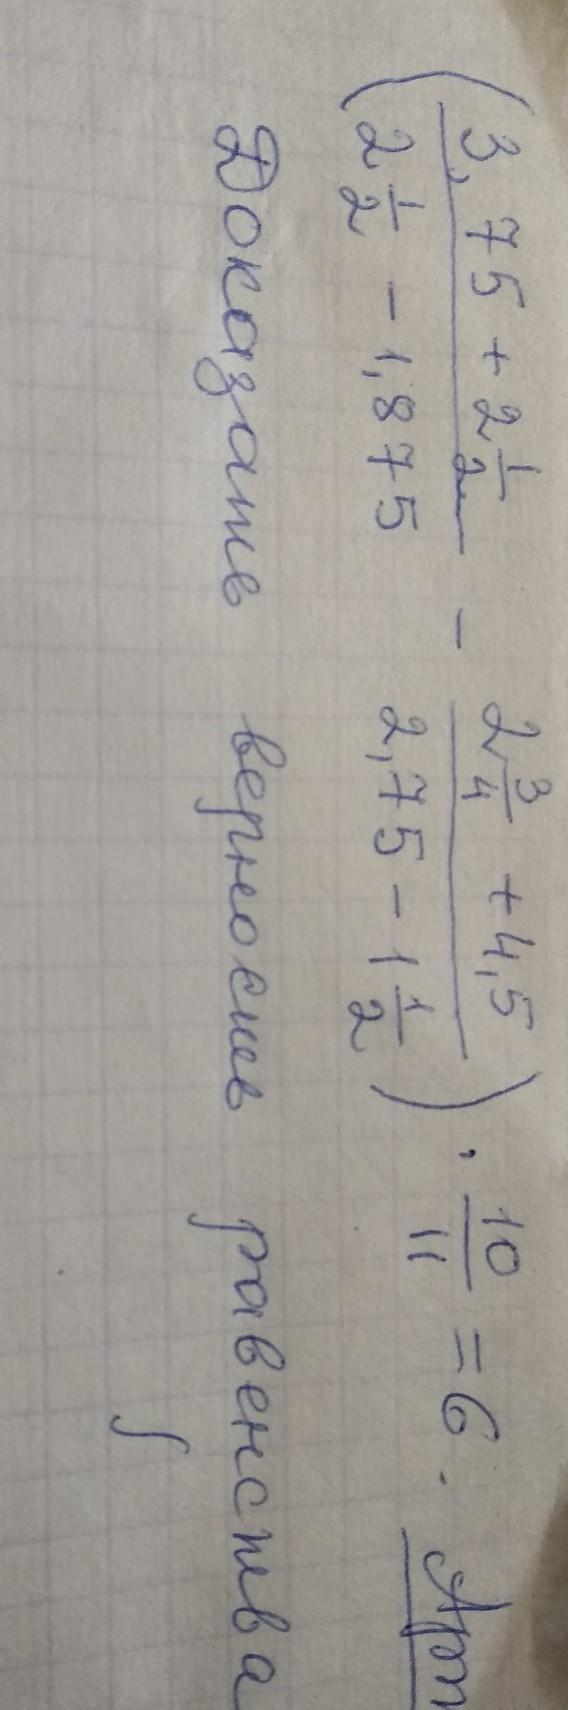 (3,75 + 2 1/2 / 2 1/2 - 1,875 - 2 3/4 + 4,5 / 2,75 - 1 1/2) · 10/11 = 6.
Доказать верность равенства